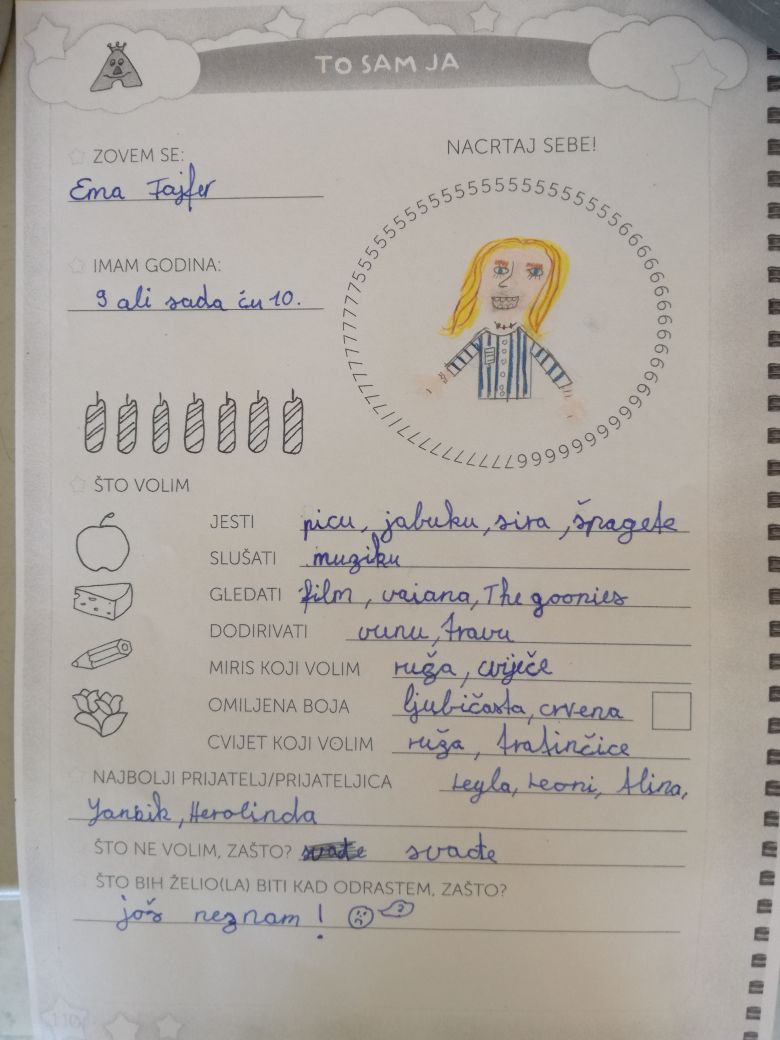 TO SAM JA
ZOVEM SE:
NACRTAJ SEBE!
Ema Fajfer
IMAM GODINA:
9 ali sada ću 10.
55555555555555555555555566666666666666666669999999999999777777777777777777777777
ŠTO VOLIM
JESTI picu, jabuku, sira, špagete
SLUŠATI muziku
GLEDATI film, vaiana, The goonies
DODIRIVATI vunu, travu
MIRIS KOJI VOLIM ruža, cviječe
OMILJENA BOJA ljubičasta, crvena
CVIJET KOJI VOLIM ruža, tratinčice
NAJBOLJI PRIJATELJ/PRIJATELJICA Leyla, Leoni, Alina,
Herolinda
ŠTO NE VOLIM, ZAŠTO? svađe svađe
ŠTO BIH ŽELIO(LA) BITI KAD ODRASTEM, ZAŠTO?
još neznam!
110